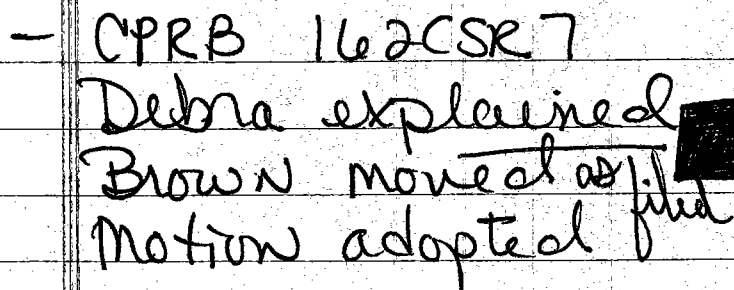 - CPRB 162CSR7
Debra explained
Brown moved as filed
Motion adopted